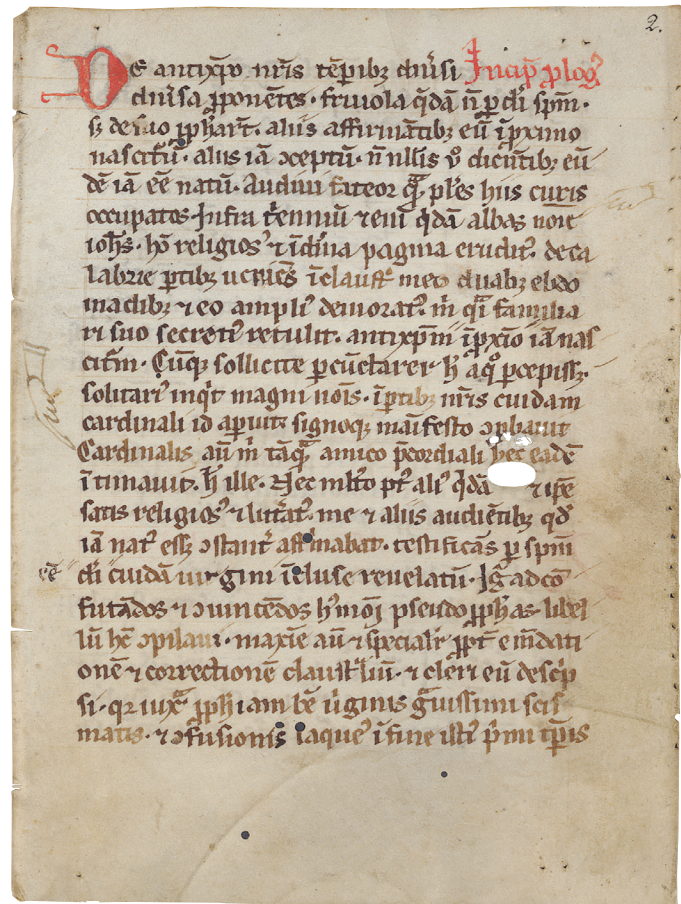 2.
De antixp̄o nr̄is tēpib; diu̾si Incip̄ ꝓlog᷒
diu̾sa ꝓponētes · friuola q̄dā ñ ꝑ dī sp̄m̄ ·
s; de suo ꝓph̄ar̄t · aliis affirmātib; eū ī ꝓximo
nascitur̄ · aliis iā ↄceptū · ñ nll̄is v̊ diceñtib; eū
dē iā eē natū · Audiui fateor qͣ pl̾es hiis curis
occupatos · Infra t̾enniū ⁊ enī q̄dā albas noīe
ioh̄s · hō religios᷒ ⁊ ī diīna pagina erudit᷒ · de ca
labrie ꝑtib; ueniēs ī claustͦ meo duab; ebdo
madib; ⁊ eo ampli᷒ demorat᷒ · m̄ qͣi familia
ri suo secreti᷒ retulit · antixp̄m̄ ī ꝓxīo iā nas
citm̄ · Cūq; sollicite ꝑcūctarer h̄ a qͦ ꝑcepiss; ·
solitari᷒ inqͥt magni noīs · ī ꝑtib; nr̄is cuidam
cardinali id aꝑuit signoq; maīfesto ꝓbauit
Cardinalis aū m̄ tāqͣ amico p̄cordiali hec eadē
ītimauit · h̄ ille · Nec ml̄to pͭ ali᷒ q̄dā ⁊ ip̄e
satis religios᷒ ⁊ litt̾at᷒ · me ⁊ aliis audiētib; qd̾
iā nat᷒ ess; ↄstant̾ affirmabat · testificās ꝑ sp̄m
eē dī cuidā uirgini īcluse reuelatū · Igͥ ad cō
futādos ⁊ ↄuincēdos h᷒moī pseudo ꝓph̄as · libel
lū hūc ↄpilaui · maxīe aū ⁊ specialit̾ ꝓpt̾ em̄dati
onē ⁊ correctionē claustͣliū · ⁊ cleri eū desc̾p
si · qꝛ iuxͣ ꝓph̄iam bē ūginis gͣuissimi scis
matis · ⁊ ↄfusionis laque᷒ ī fine isti᷒ pͥmi tp̄is